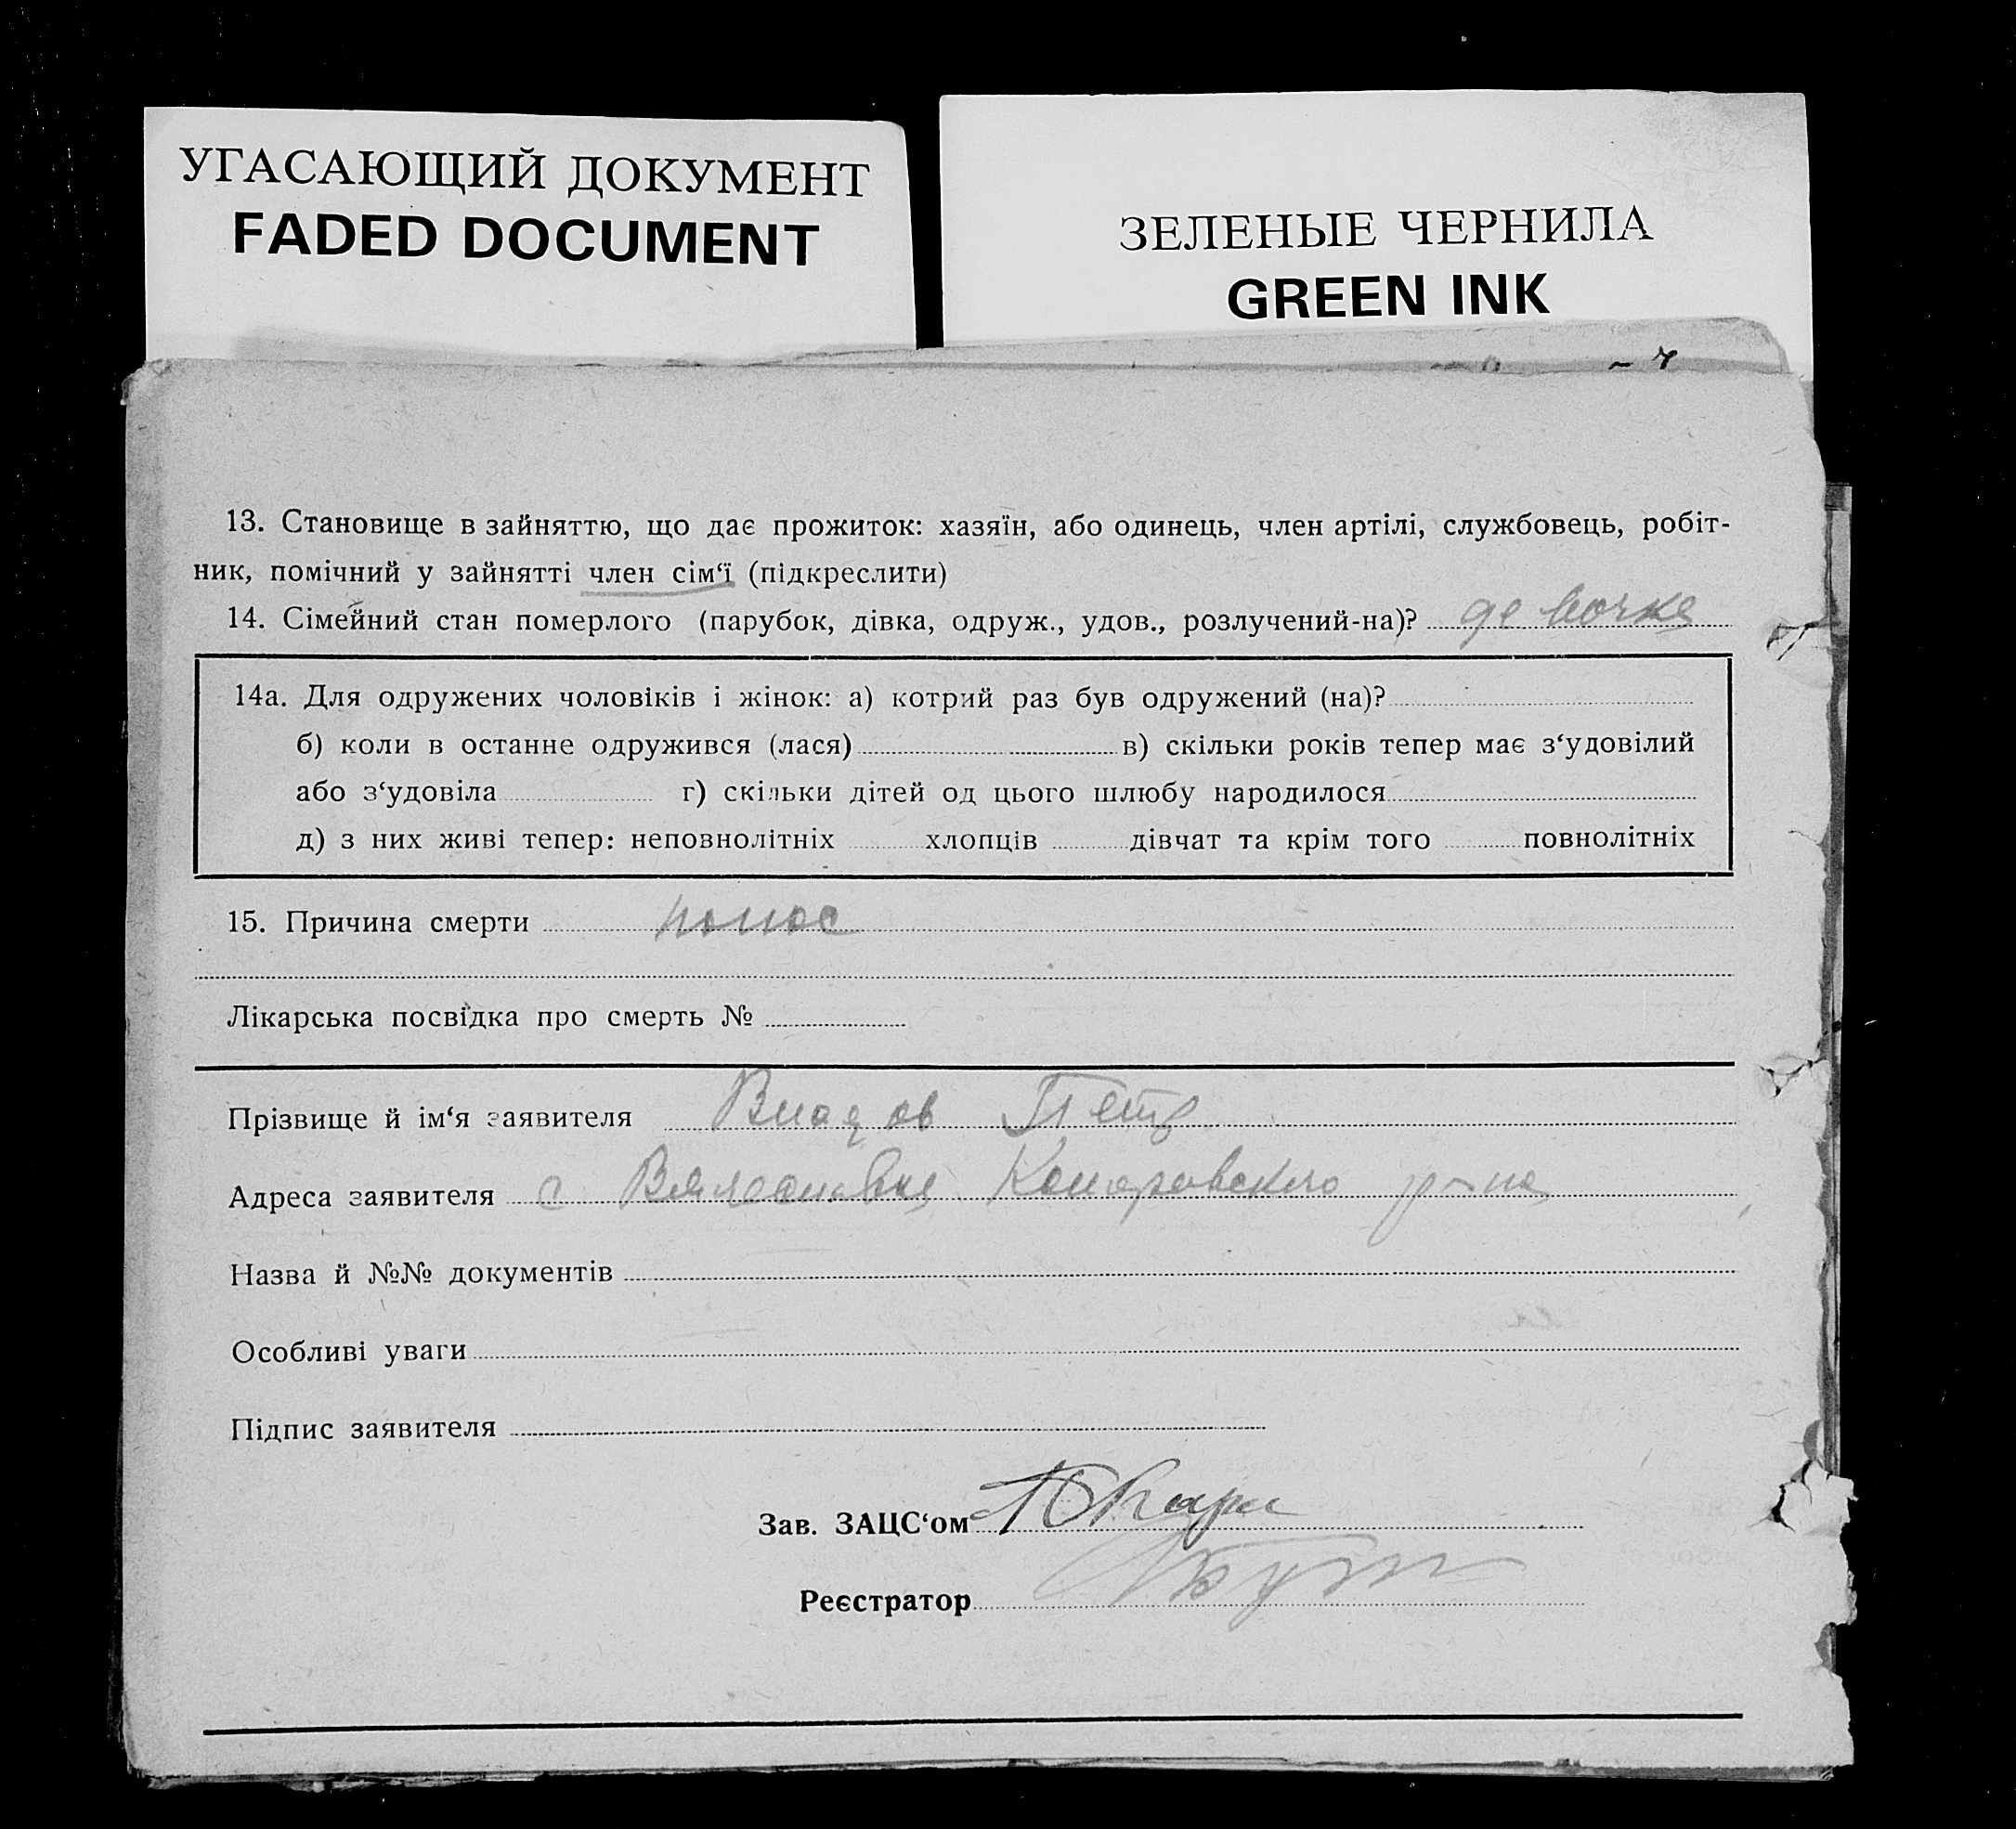 УГАСАЮЩИЙ ДОКУМЕНТ
FADED DOCUMENT
ЗЕЛЕНЫЕ ЧЕРНИЛА
GREEN INK
13. Становище в зайняттю, що дає прожиток: хазяїн, або одинець, член артілі, службовець, робіт-
ник, помічний у зайнятті член сім‘ї (підкреслити)
14. Сімейний стан померлого (парубок, дівка, одруж., удов., розлучений-на)? девочка
14а. Для одружених чоловіків і жінок: а) котрий раз був одружений (на)?
б) коли в останне одружився (лася) в) скільки років тепер має з‘удовілий
або з‘удовіла г) скільки дітей од цього шлюбу народилося
д) з них живі тепер: неповнолітніх хлопців дівчат та крім того повнолітніх
15. Причина смерти понос
Лікарська посвідка про смерть №
Прізвище й ім‘я заявителя Петр
Адреса заявителя с р-на
Назва й №№ документів
Особливі уваги
Підпис заявителя
Зав. ЗАЦС‘ом
Реєстратор